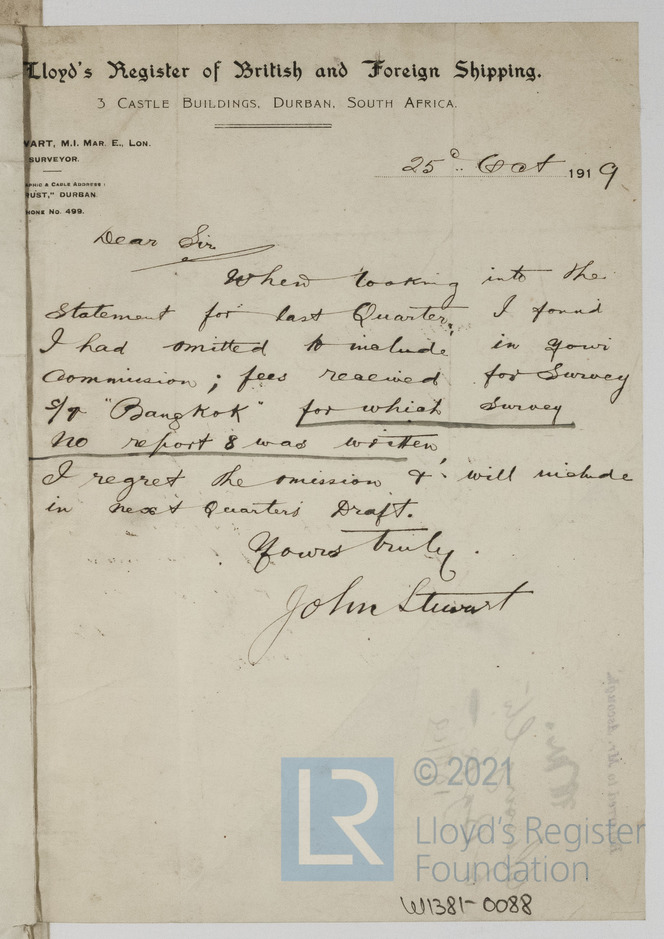 Lloyd's Register of British and Foreign Shipping.
3 CASTLE BUILDINGS, DURBAN, SOUTH AFRICA.
WART, M.I. MAR. E., LON.
SURVEYOR.
APHIC & CABLE ADDRESS:
RUST," DURBAN
HONE No. 499.
25d Oct 1919
Dear Sir
When looking into the
statement for last Quarter, I found
I had omitted to include in your
commission; fees received for Survey
"Bangkok" for which survey
no report 8 was written,
I regret the omission & will include
in next Quarters Draft.
Yours truly.
John Stewart
LR
© 2021
Lloyd's Register
Foundation
W1381-0088